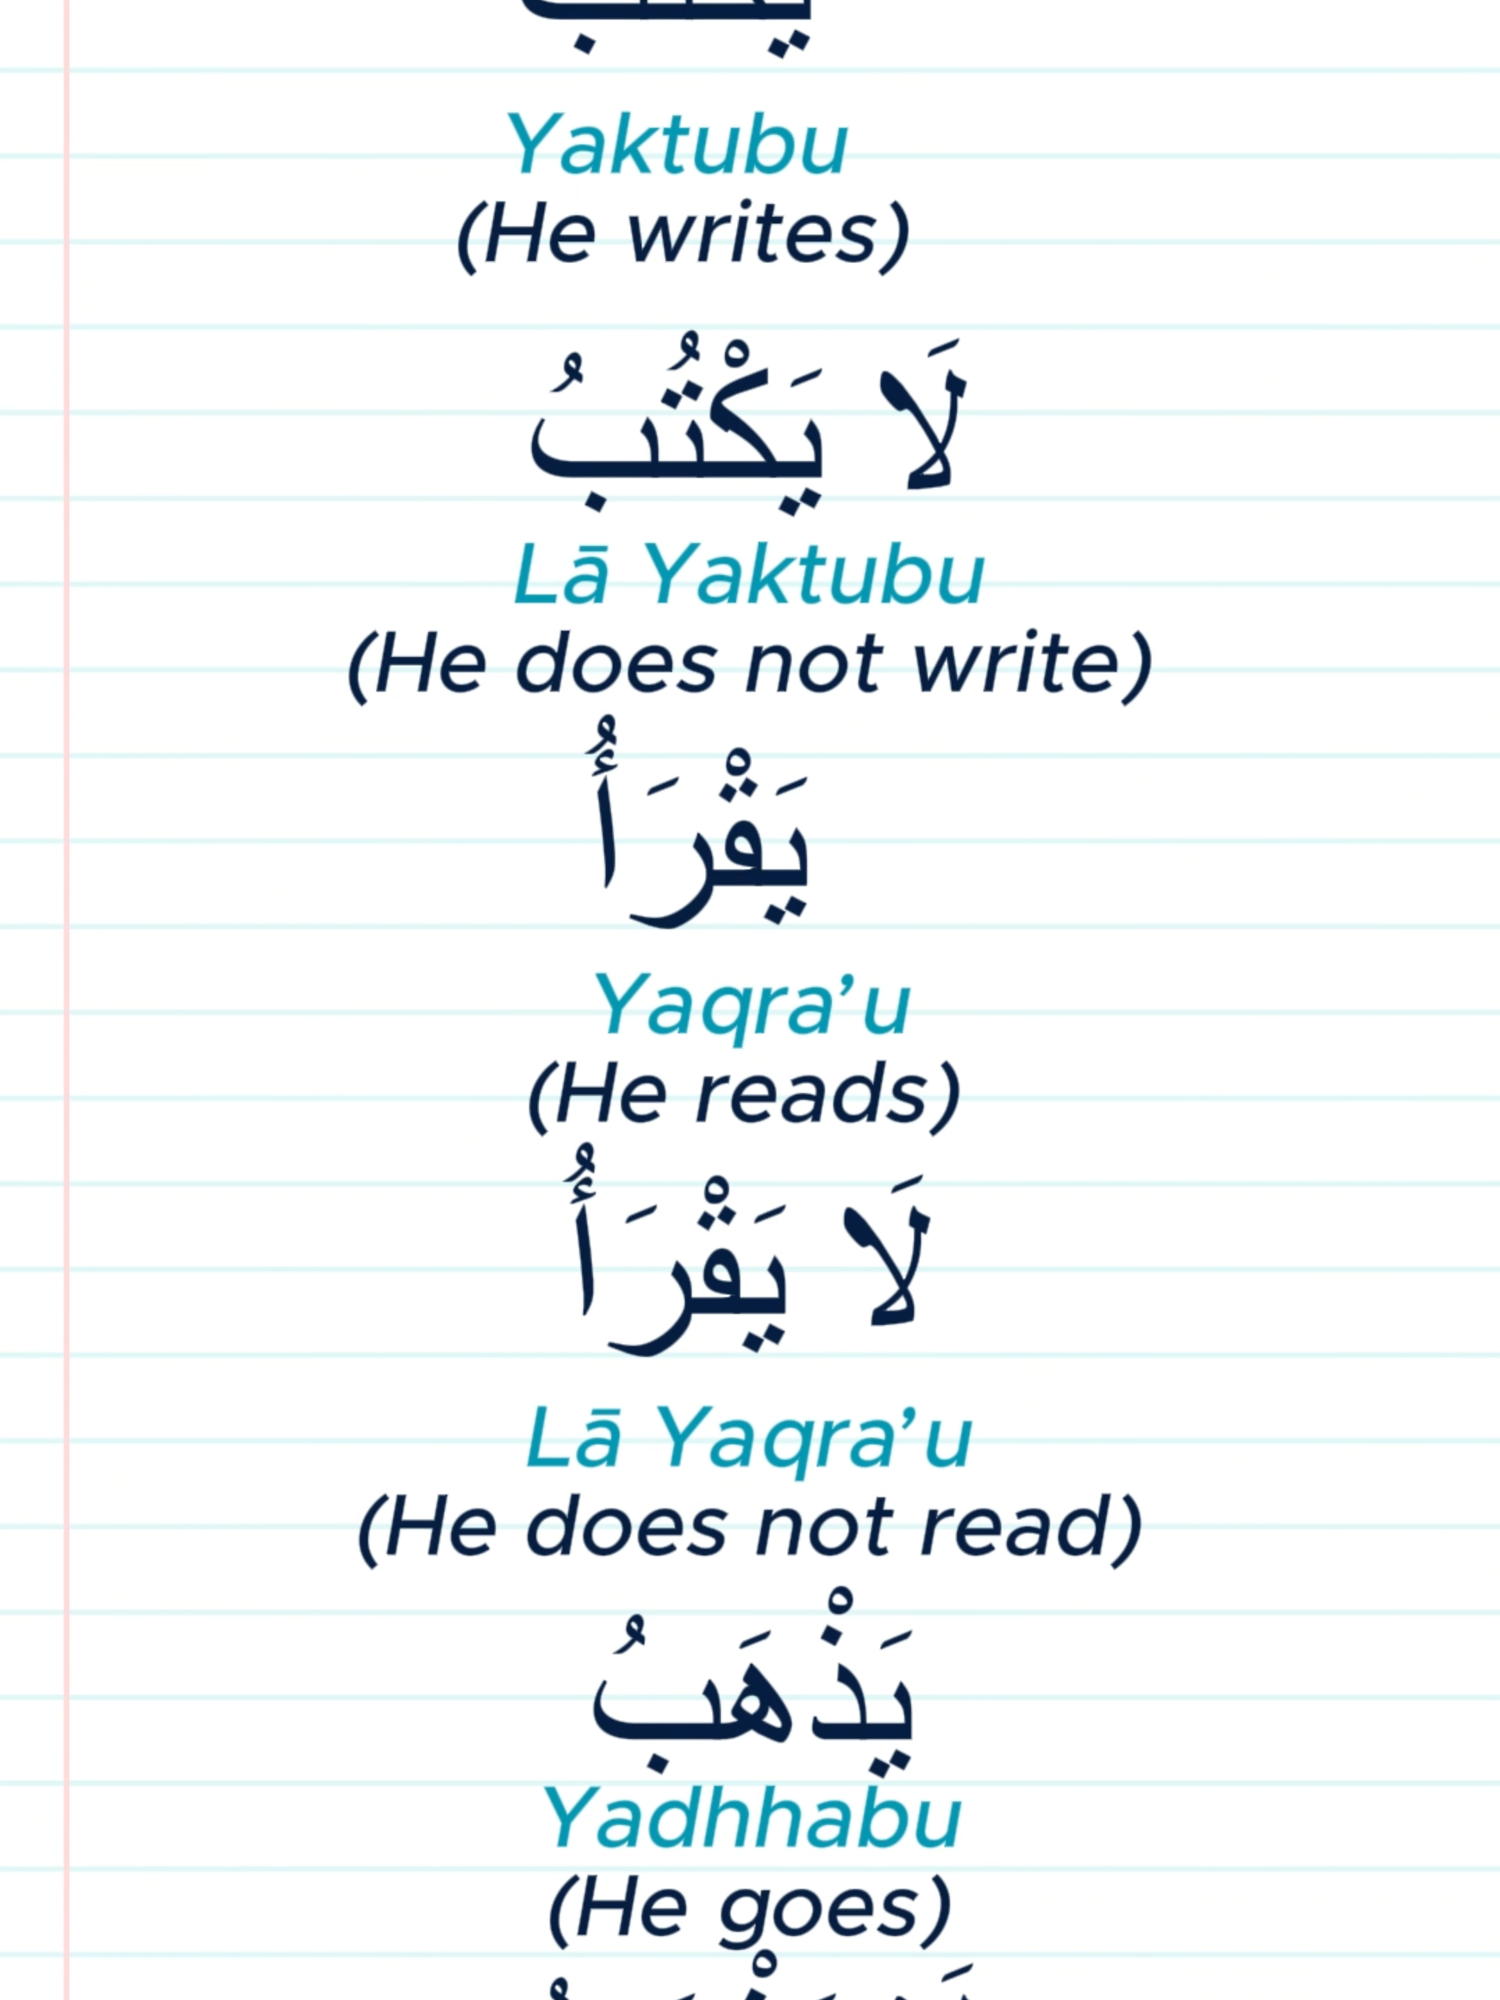 Yaktubu
(He writes)
لَا يَكْتُبُ
Lā Yaktubu
(He does not write)
يَقْرَأُ
Yaqra’u
(He reads)
لَا يَقْرَأُ
Lā Yaqra’u
(He does not read)
يَذْهَبُ
Yadhhabu
(He goes)